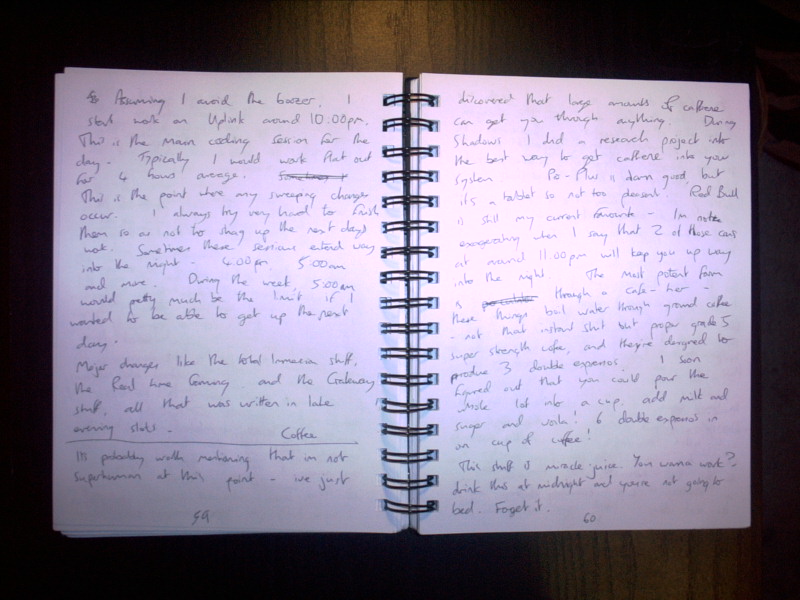 Assuming I avoid the boozer, I
start work on Uplink around 10.00pm.
This is the main coding session for the
day. Typically I would work flat out
for 4 hours average.
This is the point where any sweeping changes
occur. I always try very hard to finish
them so as not to shag up the next days
work. Sometimes these sessions extend way
into the night - 4.00pm 5:00am
and more. During the week, 5:00am
would pretty much be the limit if I
wanted to be able to get up the next
day.
Major changes like the total immersion stuff,
the Real time Coming and the Gateway
stuff, all that was written in late
evening slots.
Coffee
Its probably worth mentioning that im not
superhuman at this point - ive just
59
discovered that large amounts of caffeine
can get you through anything. During
Shadows I did a research project into
the best way to get caffeine into your
system Pro-Plus is damn good but
its a tablet so not too pleasent. Red Bull
is still my current favourite - Im not
exagerating when I say that 2 of those cans
at around 11.00pm will keep you up way
into the night. The most potent form
is through a cafe-tier -
these things boil water though ground coffee
- not that instant shit but proper grade 5
super strength cofee, and they're designed to
produce 3 double expressos. I soon
figured out that you could pour the
whole lot into a cup, add milk and
sugar and voila! 6 double expressos in
on cup of coffee!
This stuff is miracle-juice. You wanna work?
drink this at midnight and you're not going to
bed. Foget it.
60